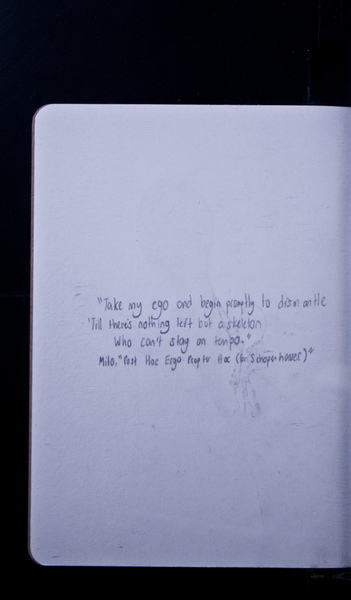 "Take my ego and begin promptly to dismantle
'Till there's nothing left but a skeleton
Who can't stay on tempo."
Milo, "Post Hoc Ergo Propter Hoc (for Schopenhauer)"